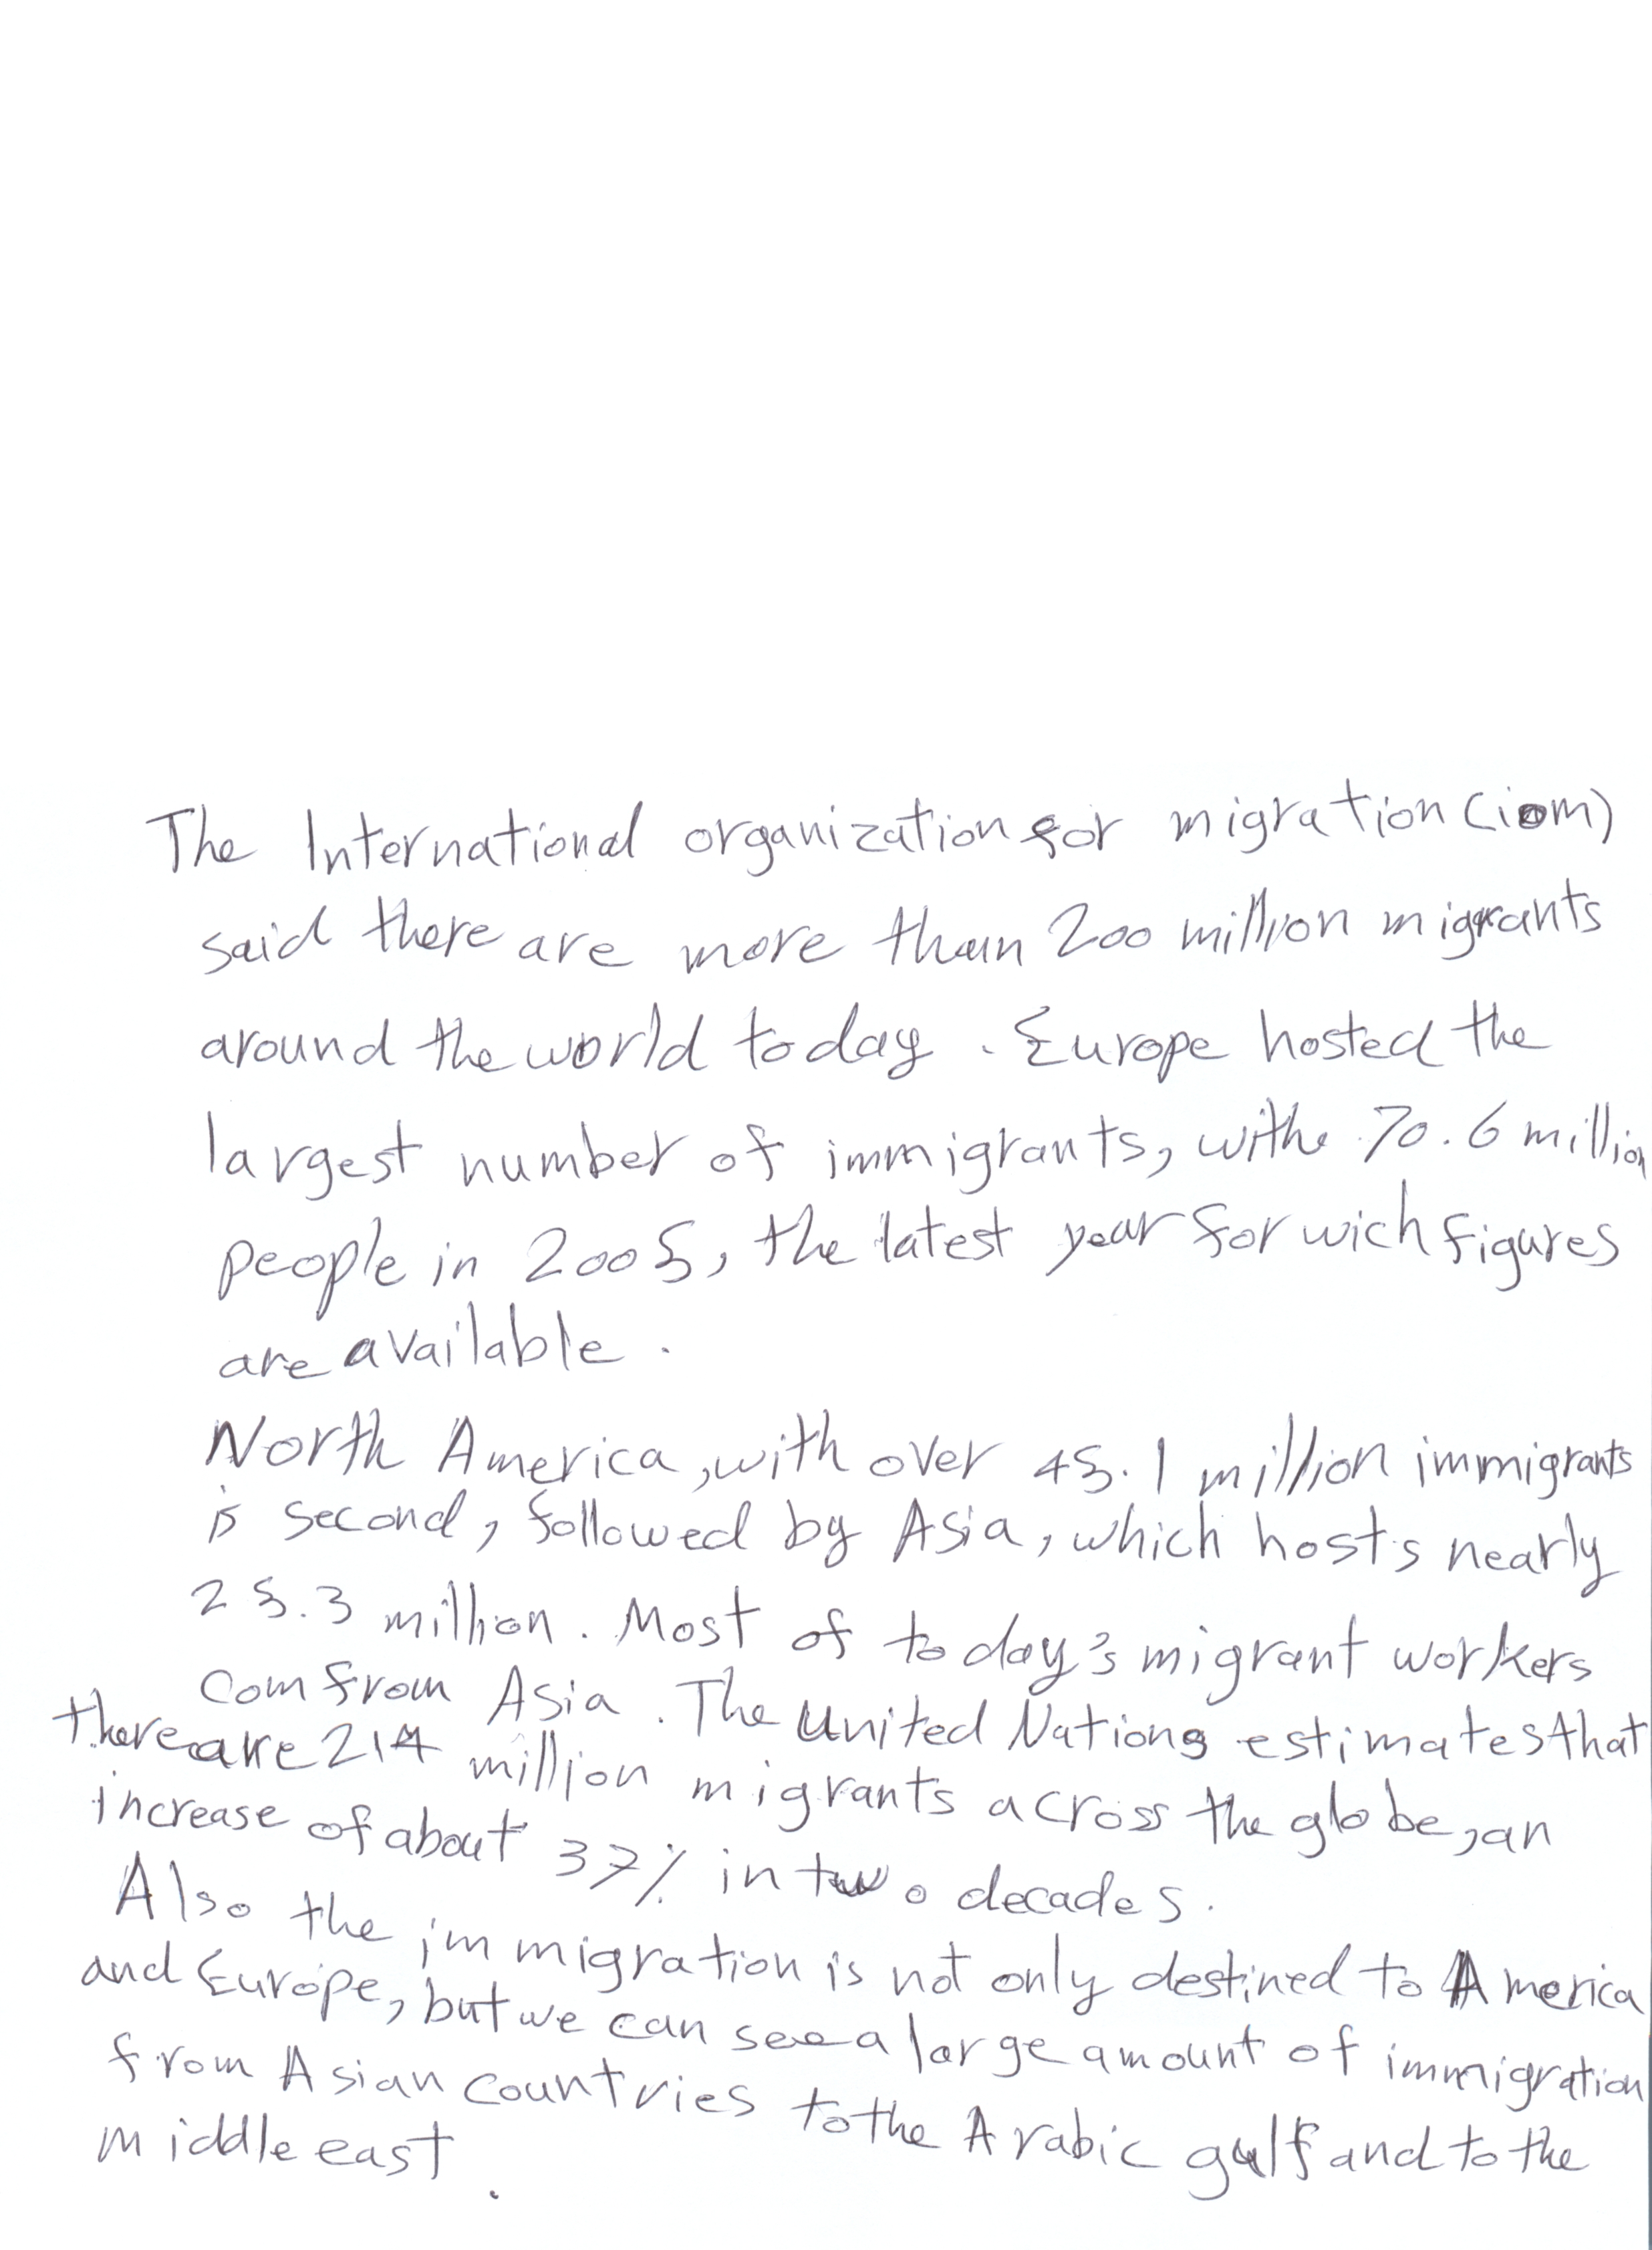 The International organization for migration (iom)
said there are more than 200 million migrants
around the world today. Europe hosted the
largest number of immigrants, withe 70.6 million
people in 2005, the latest year for wich figures
are available.
North America, with over 45.1 million immigrants
is second, followed by Asia, which hosts nearly
25.3 million. Most of today's migrant workers
com from Asia. The United Nations estimates that
there are 214 million migrants across the globe, an
increase of about 37% in two decades.
Also the immigration is not only destined to America
and Europe, but we can see a large amount of immigration
from Asian countries to the Arabic gulf and to the
middle east.